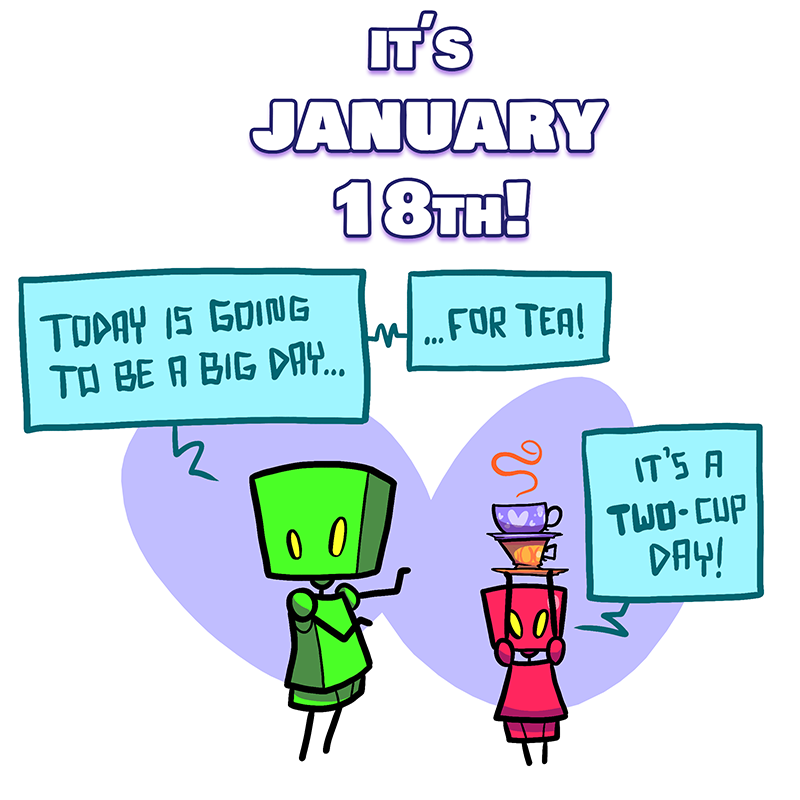 IT'S
JANUARY
18TH!
TODAY IS GOING
TO BE A BIG DAY...
...FOR TEA!
IT'S A
TWO-CUP
DAY!